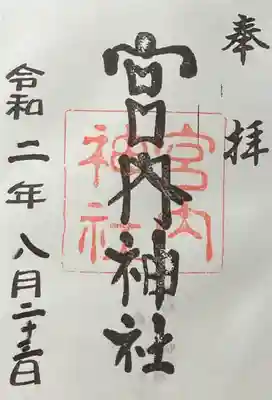 奉拝
宮内神社
宮内神社
令和二年八月二十三日